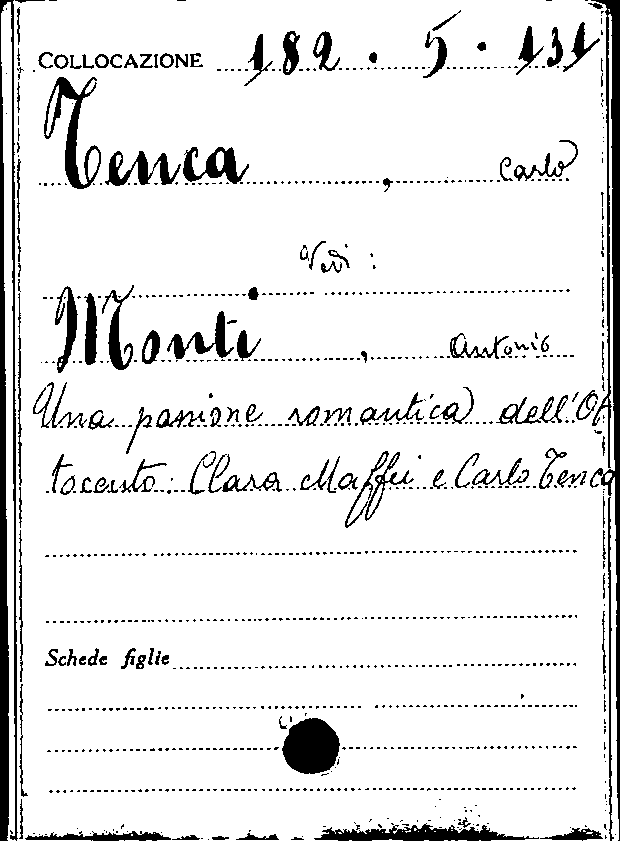 COLLOCAZIONE 182.5.131
Tenca, Carlo
Vedi:
Monti, Antonio
Una passione romantica dell'Ot-
tocento: Clara Maffei e Carlo Tenca
Schede figlie